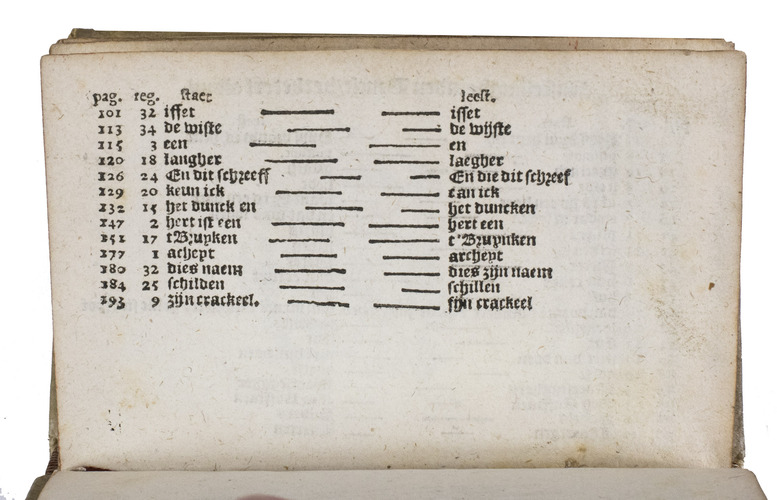 pag. reg. staet leest.
101 32 isset isset
113 34 de wiste de wijste
115 3 een en
120 18 langher laegher
126 24 En dit schreeff En die dit schreef
129 20 keun ick can ick
132 15 het dunck en het duncken
147 2 hert ist een hert een
151 17 t'Bruyken t'Bruynken
177 1 acheyt archeyt
180 32 dies naem dies zijn naem
184 25 schilden schillen
193 9 zijn crackeel. sijn crackeel